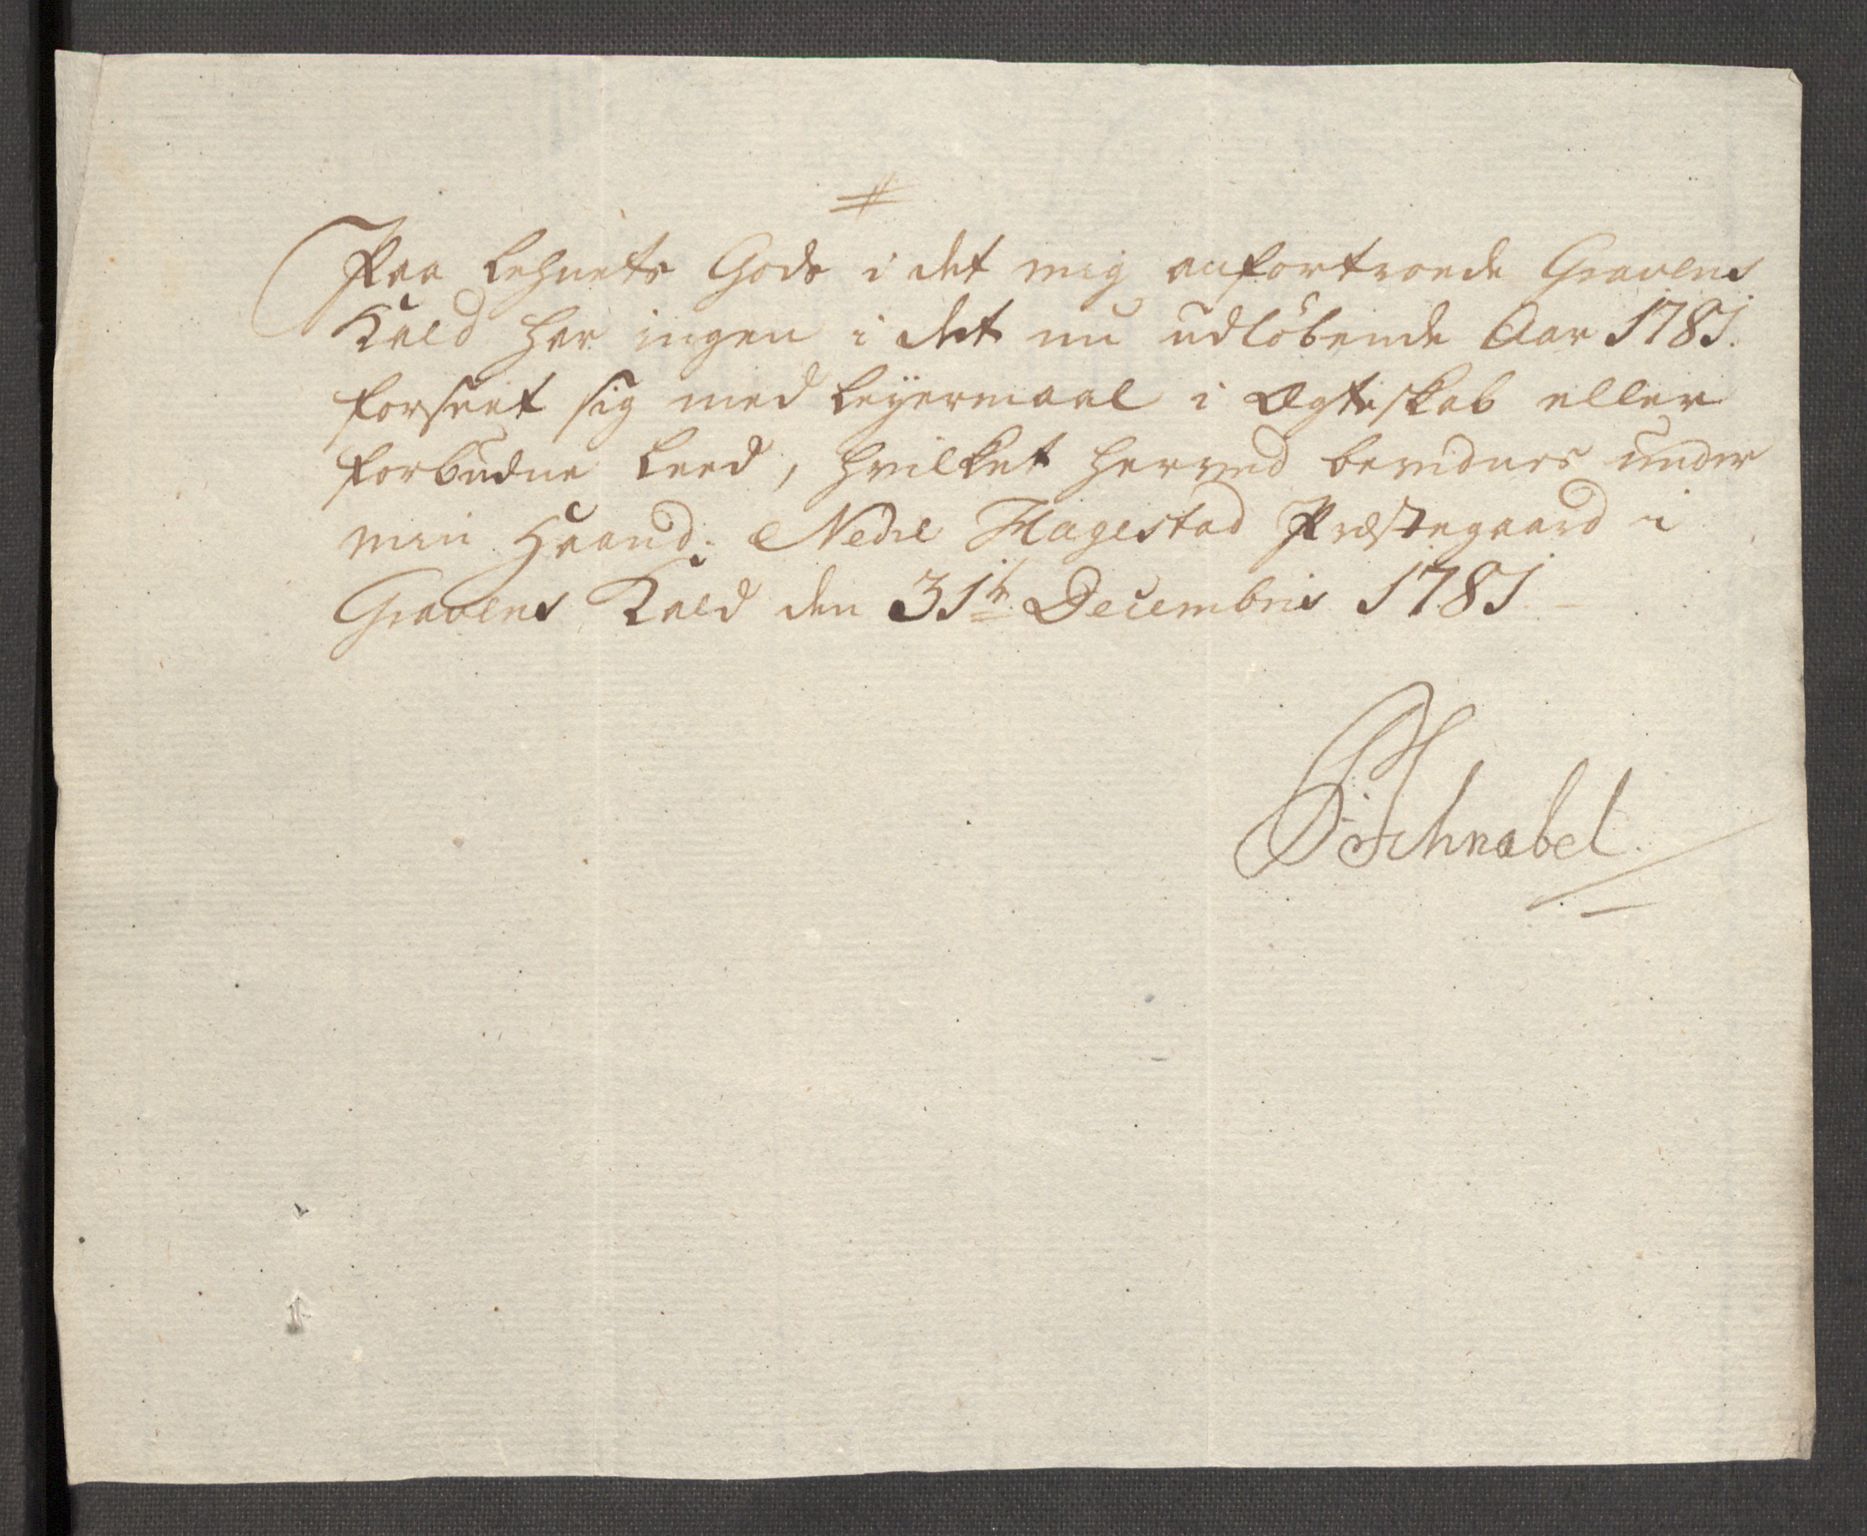 #
Paa Lehnets Gods i det mig anfortroede Gravens
Kald har ingen i det nu udløbende Aar 1781.
forseet sig med Leyermaal i Ægteskab eller
forbudne Leed, hvilket herved bevidnes under
min Haand. Nedre Hagestad Præstegaard i
Gravens Kald den 31te Decembris 1781
Schnabel.